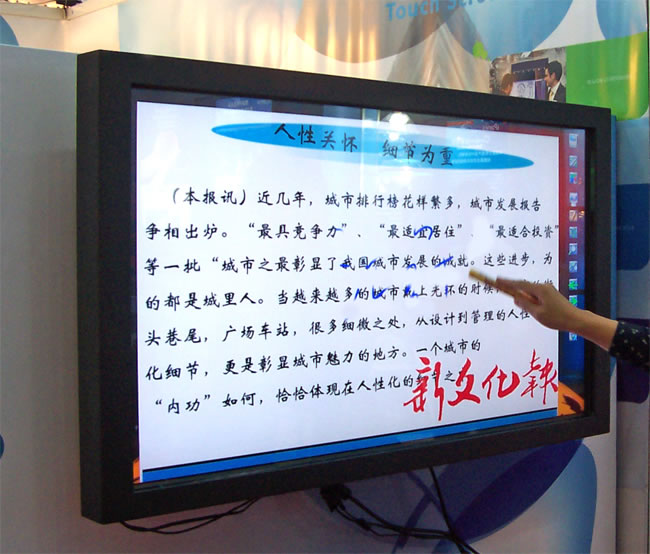 Touch Scre
人性关怀 细节为重
（本报讯）近几年，城市排行榜花样繁多，城市发展报告
争相出炉。“最具竞争力”、“最适宜居住”、“最适合投资”
等一批“城市之最彰显了我国城市发展的成就。这些进步，为
的都是城里人。当越来越多的城市
上光
的时候
头巷尾，广场车站，很多细微之处，从设计到管理的人性
化细节，更是彰显城市魅力的地方。一个城市的
“内功”如何，恰恰体现在人性化的
之
新文化报